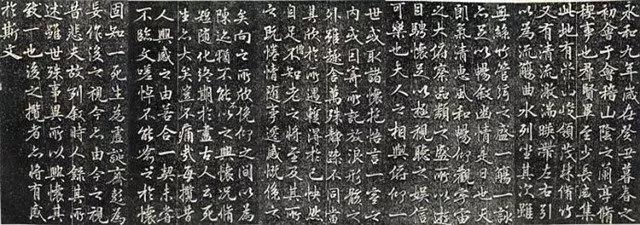 永和九年歲在癸丑暮春之
初會于會稽山陰之蘭亭脩
稧事也羣賢畢至少長咸集
此地有崇山峻領茂林脩竹
又有清流激湍暎帶左右引
以為流觴曲水列坐其次雖
無絲竹管弦之盛一觴一詠
亦足以暢敘幽情是日也天
朗氣清惠風和暢仰觀宇宙
之大俯察品類之盛所以遊
目騁懷足以極視聽之娛信
可樂也夫人之相與俯仰一
世或取諸懷抱悟言一室之
內或因寄所託放浪形骸之
外雖趣舍萬殊靜躁不同當
其欣於所遇暫得於己怏然
自足不知老之將至及其所
之既惓情隨事遷感慨係之
矣向之所欣俛仰之間以為
陳迹猶不能不以之興懷況脩
短隨化終期於盡古人云死
生亦大矣豈不痛哉每攬昔
人興感之由若合一契未嘗
不臨文嗟悼不能喻之於懷
固知一死生為虛誕齊彭殤為
妄作後之視今亦由今之視
昔悲夫故列敘時人錄其所
述雖世殊事異所以興懷其
致一也後之攬者亦將有感
於斯文